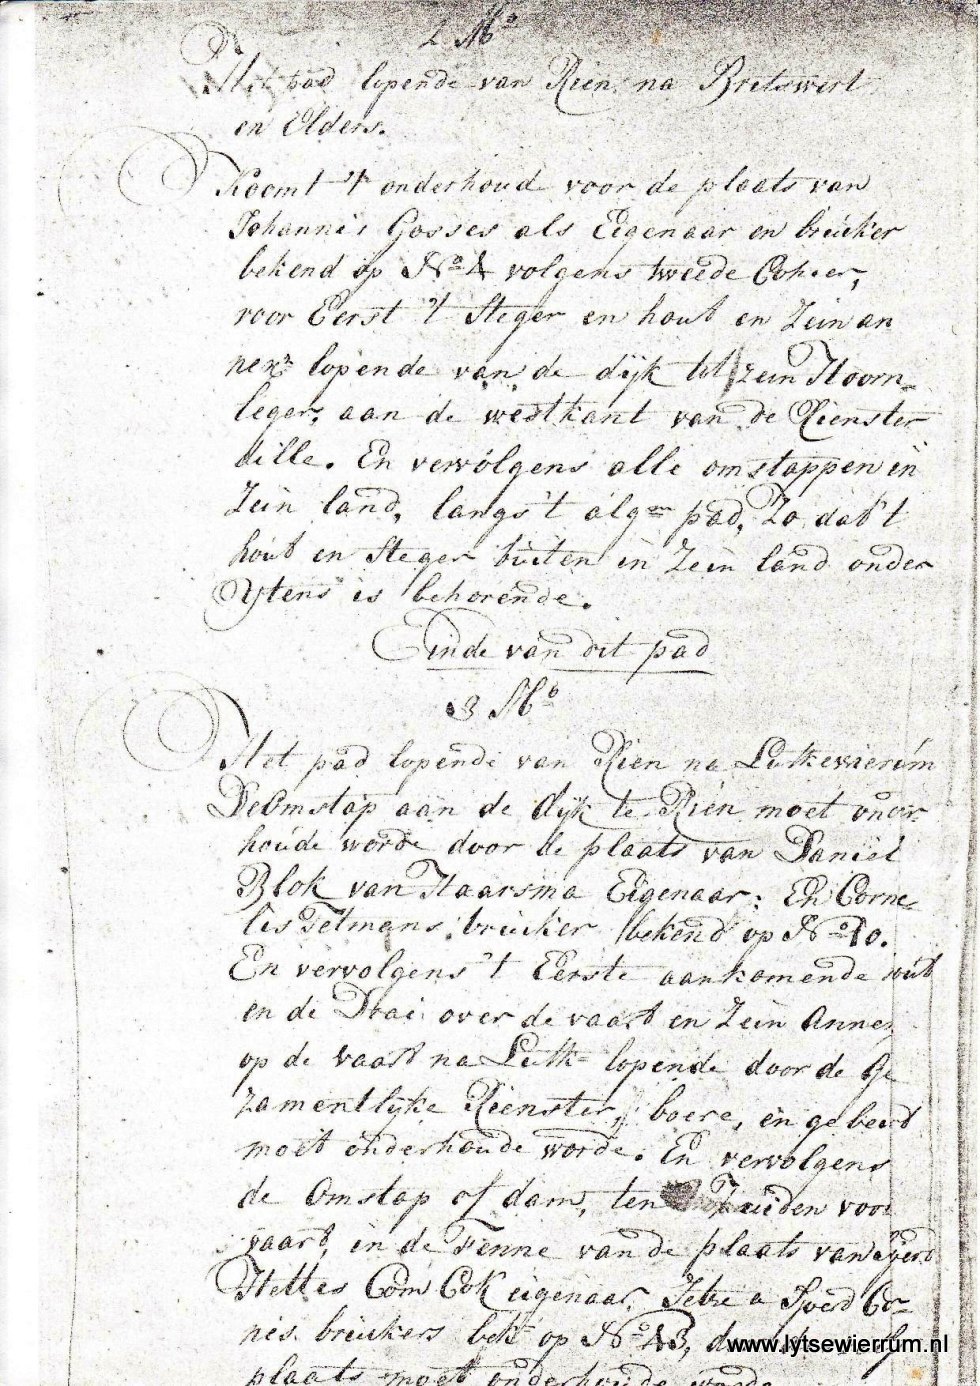 2 Mo
Het pad lopende van Rien na Britswert
en Elders.
Koomt 't onderhoud voor de plaats van
Johannis Gosses als Eigenaar en brúiker
bekend op No 4 volgens tweede Cohier,
voor Eerst 't Steger en hout en Zein an
nex lopende van de dijk tot zein Hoorn-
leger, aan de westkant van de Rienster
dille. En vervolgens alle omstappen in
Zein land, langs 't algen pad, Zo dat 't
hout en Steger buiten in Zein land onder
Ytens is behorende.
Einde van dit pad
3 Mo
Het pad lopende van Rien na Lutkewierúm
De Omstap aan de dijk te Rien moet onder
houde worde door de plaats van Daniel
Blok van Haarsma Eigenaar: En Corne-
lis Tetmans brúiker bekend op No 10.
En vervolgens 't Eerste aankomende hout
en de Draai over de vaart en Zein Annex
op de vaart na Lutk= lopende door de Ge
zamentlijke Rienster, boere, en gebeurt
moet onderhoude worde. En vervolgens
de Omstap of dam, ten Zuiden voor
vaart, in de Fenne van de plaats van
Hettes Com Cok eigenaar Jetze a Sjoerd Cor-
nis. brúikers bekt op No 43, door
plaats moet onderhoude worde
www.lytsewierrum.nl